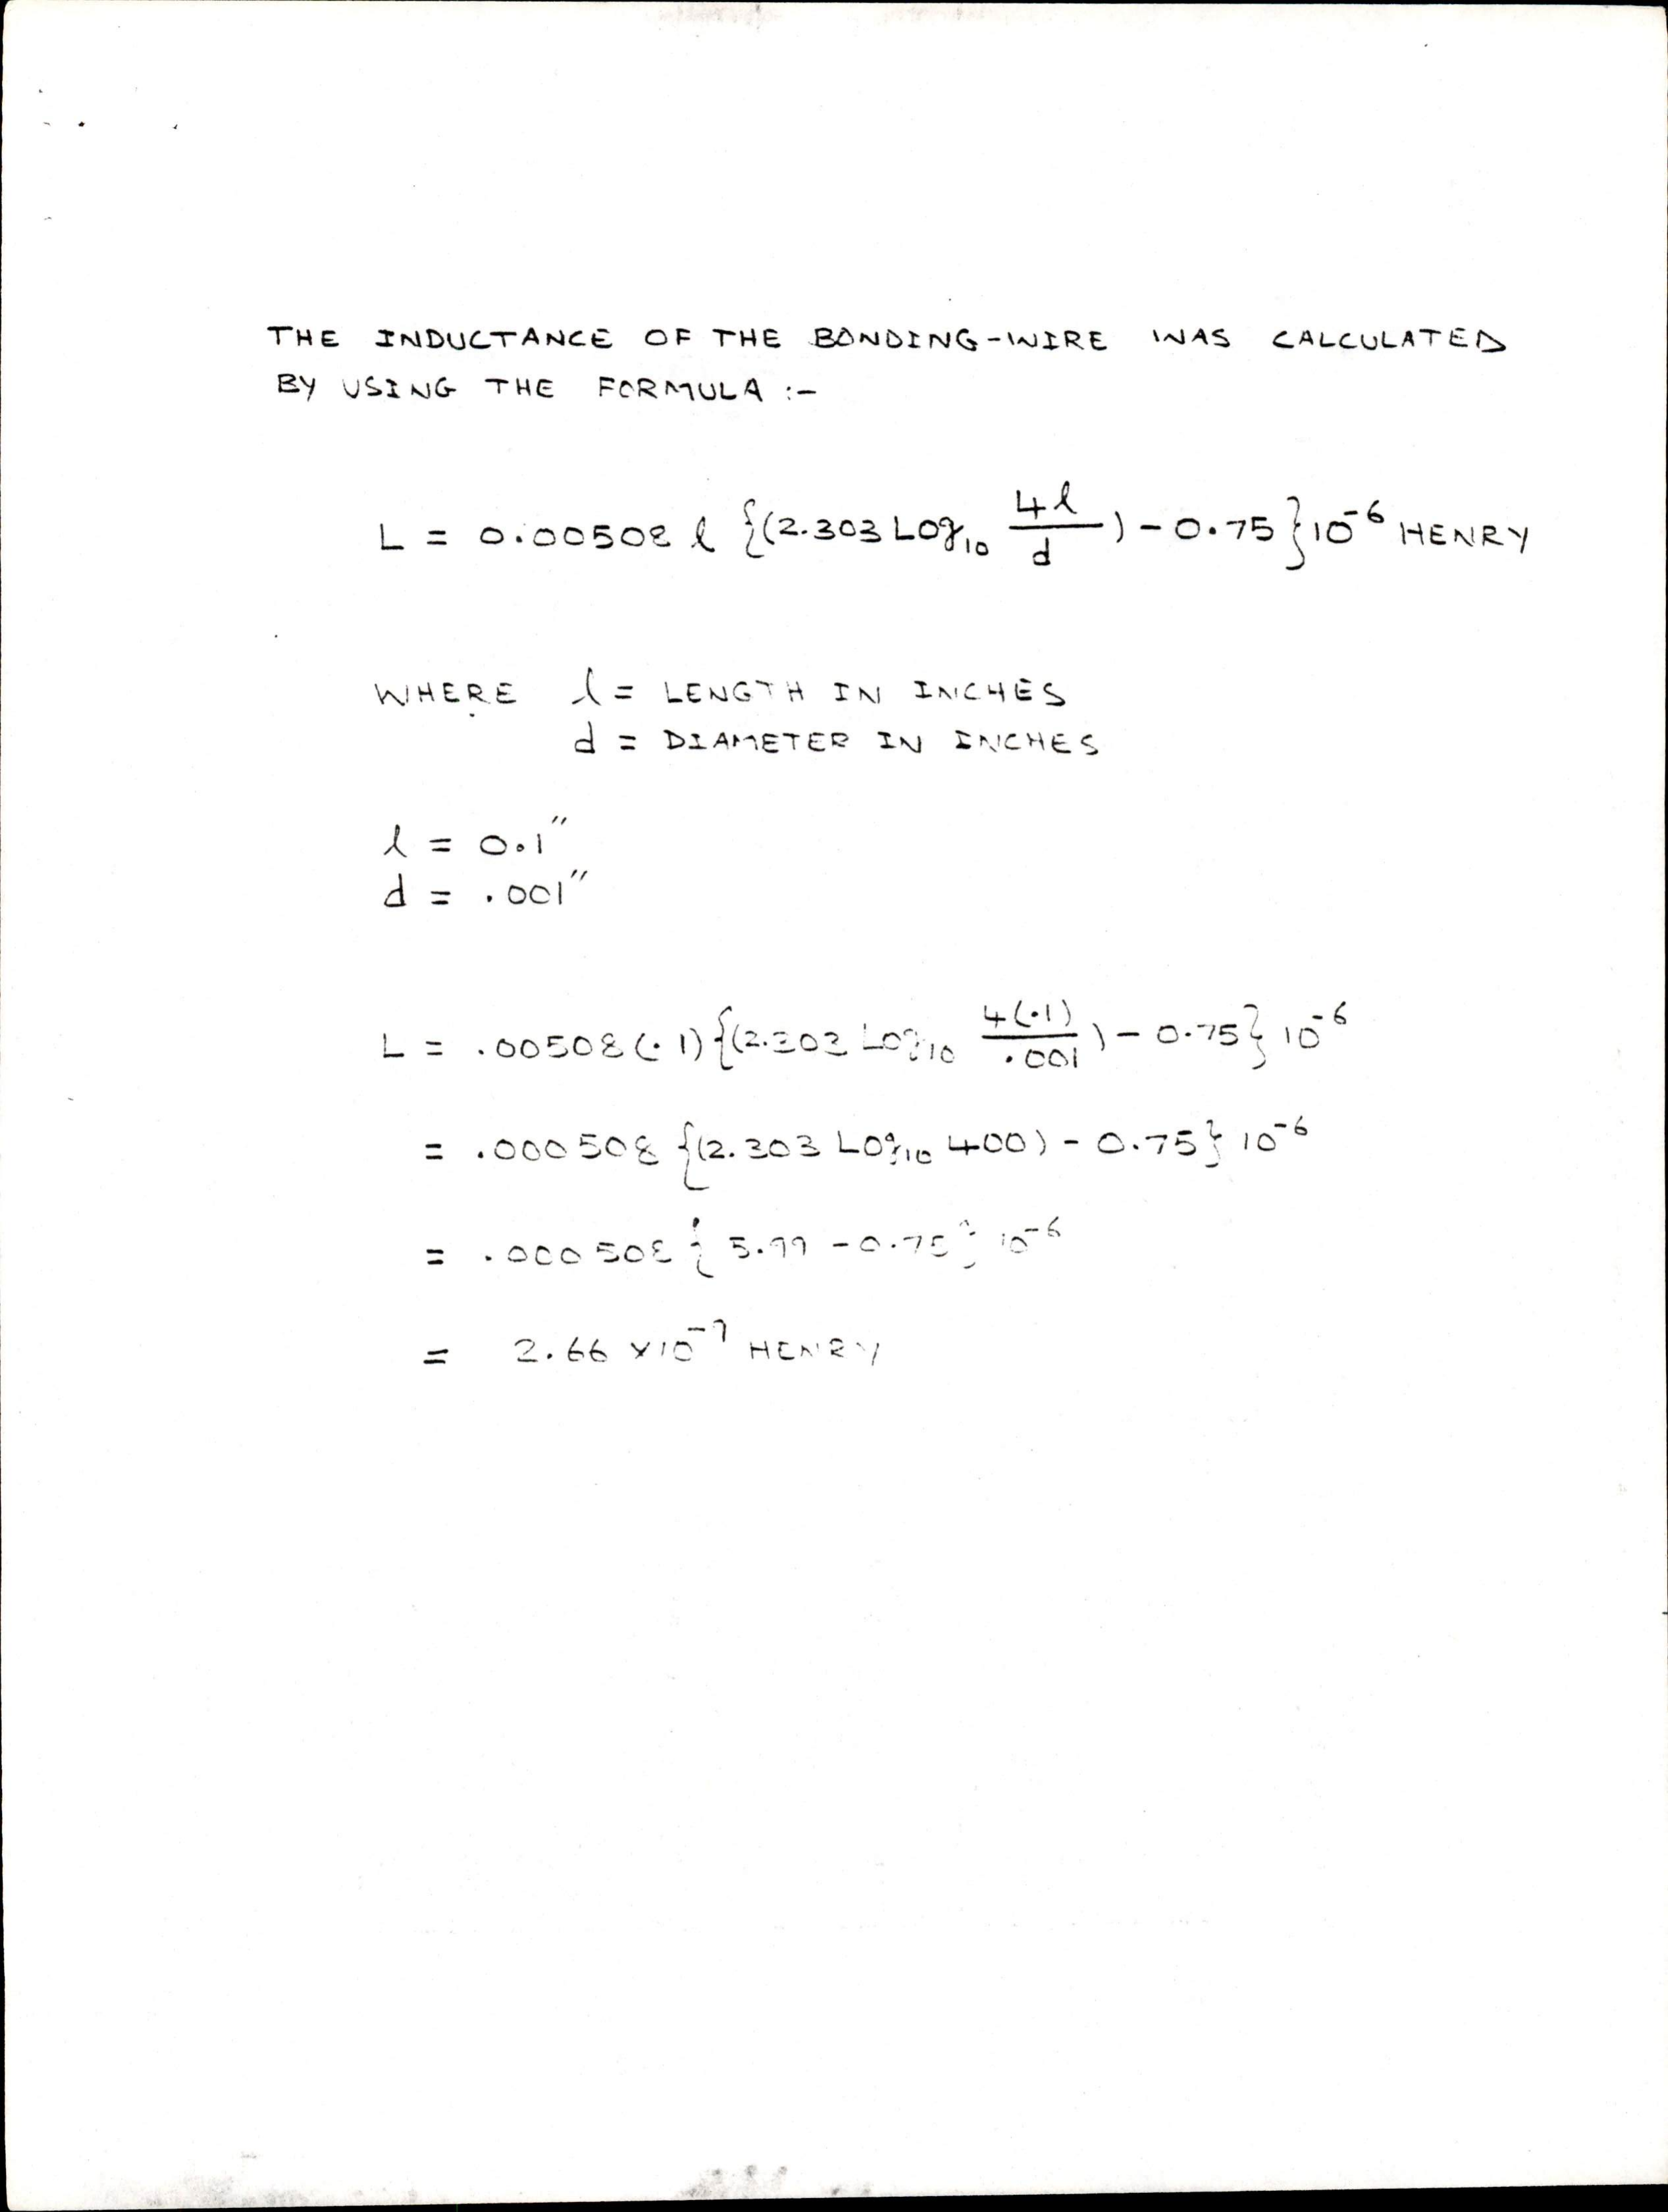 THE INDUCTANCE OF THE BONDING-WIRE WAS CALCULATED
BY USING THE FORMULA :-
L = 0.00508 l {(2.303 Log₁₀ 4l/d) - 0.75} 10⁻⁶ HENRY
WHERE l = LENGTH IN INCHES
d = DIAMETER IN INCHES
l = 0.1"
d = .001"
L = .00508 (.1) {(2.303 Log₁₀ 4(.1)/.001) - 0.75} 10⁻⁶
= .000508 {(2.303 Log₁₀ 400) - 0.75} 10⁻⁶
= .000508 { 5.99 - 0.75 } 10⁻⁶
= 2.66 x10⁻⁹ HENRY